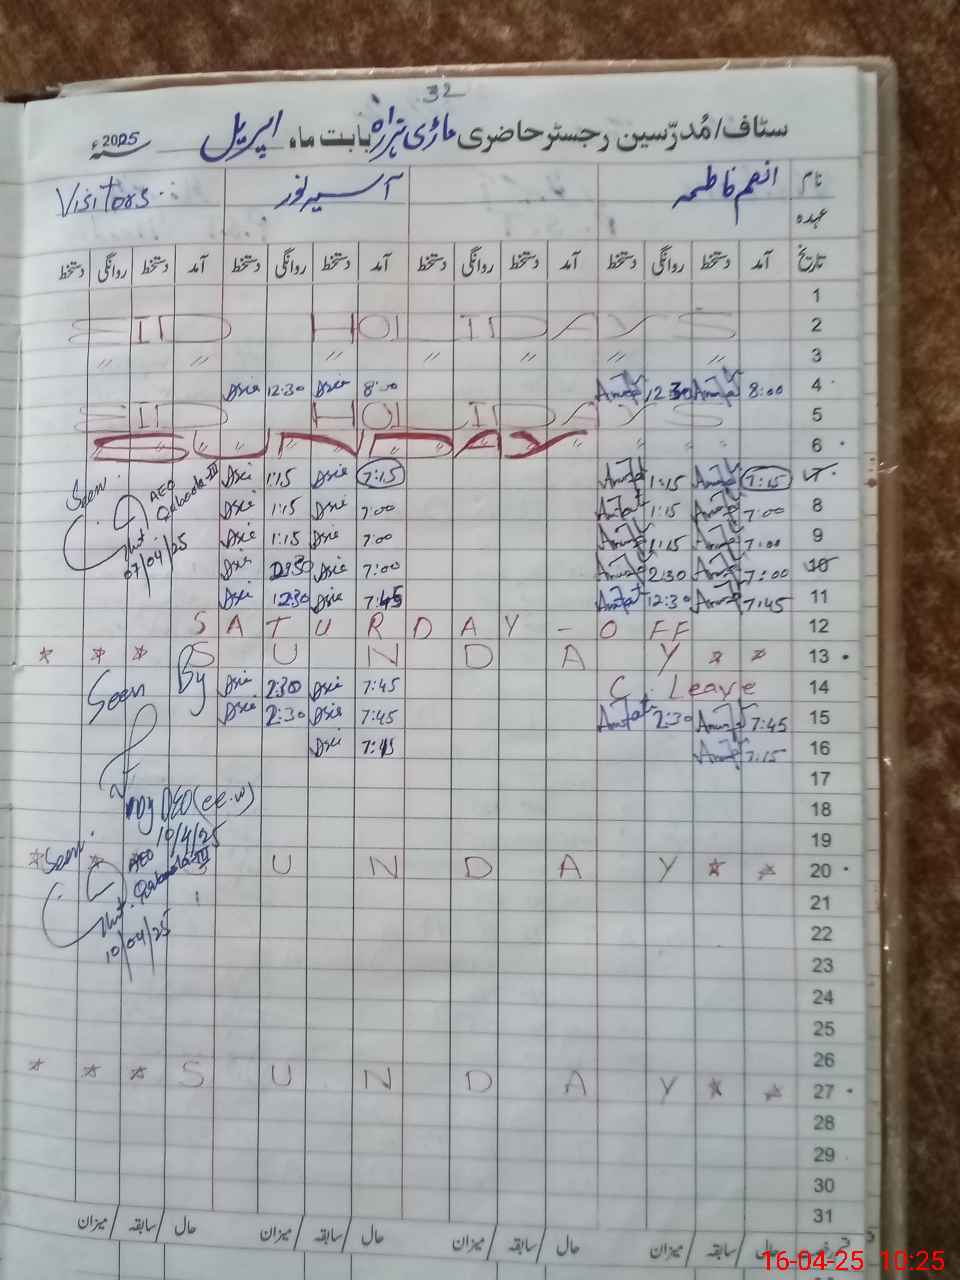 32
سٹاف/مُدرّسین رجسٹر حاضری ماڑی ہزارہ بابت ماہ اپریل 2025ء سنہ
نام انعم فاطمہ آسیہ نور Visitors
عہدہ
تاریخ آمد دستخط روانگی دستخط آمد دستخط روانگی دستخط آمد دستخط روانگی دستخط آمد دستخط روانگی دستخط
1
2 EID HOLIDAYS
3 " " " " " " "
4 8:00 12:30 8:00 Asia 12:30 Asia
5 EID HOLIDAYS
6 SUNDAY
7 7:15 1:15 7:15 Asia 1:15 Asia
Seen
AEO
07/04/25
8 7:00 1:15 7:00 Asia 1:15 Asia
9 7:00 1:15 7:00 Asia 1:15 Asia
10 7:00 2:30 7:00 Asia 2:30 Asia
11 7:45 12:30 7:45 Asia 12:30 Asia
12 SATURDAY - OFF
13 * * * SUNDAY * *
14 C. Leave 7:45 Asia 2:30 Asia
Seen By
15 7:45 2:30 7:45 Asia 2:30 Asia
16 7:15 7:45 Asia
17
18
Dy DEO (ee-w)
10/4/25
19
20 * * SUNDAY * *
Seen
AEO
10/04/25
21
22
23
24
25
26
27 * * * SUNDAY * *
28
29
30
31
حال سابقہ میزان حال سابقہ میزان حال سابقہ میزان حال سابقہ میزان
16-04-25 10:25